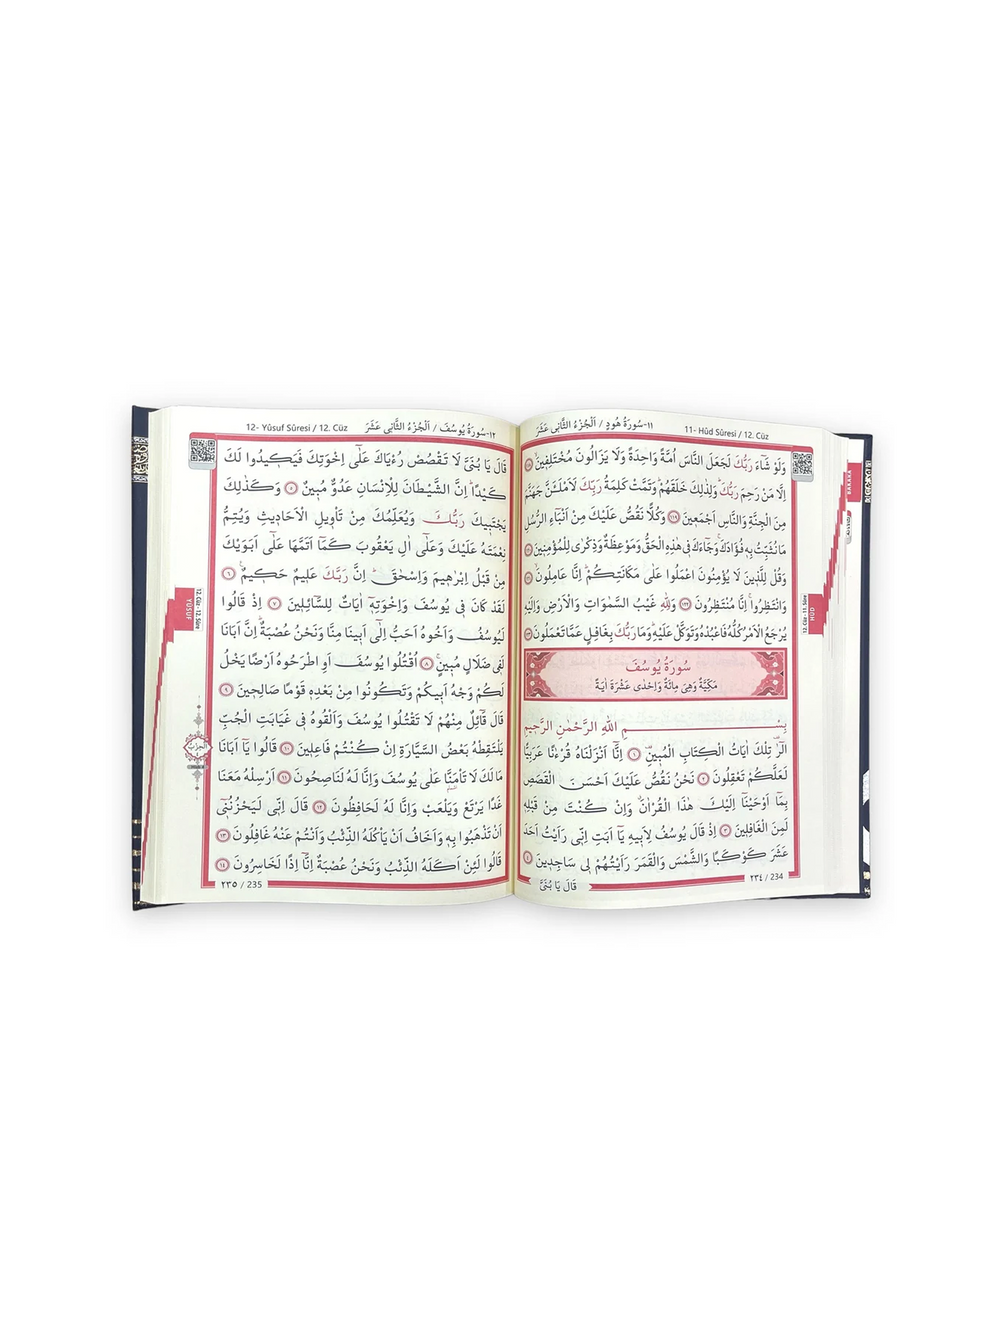 11- Hûd Sûresi / 12. Cüz
١١-سُورَةُ هُودٍ / اَلْجُزْءُ الثَّانِى عَشَرَ
وَلَوْ شَٓاءَ رَبُّكَ لَجَعَلَ النَّاسَ اُمَّةً وَاحِدَةً وَلَا يَزَالُونَ مُخْتَلِف۪ينَۙ ﴿١١٨﴾
اِلَّا مَنْ رَحِمَ رَبُّكَۜ وَلِذٰلِكَ خَلَقَهُمْۜ وَتَمَّتْ كَلِمَةُ رَبِّكَ لَاَمْلَـَٔنَّ جَهَنَّمَ
مِنَ الْجِنَّةِ وَالنَّاسِ اَجْمَع۪ينَ ﴿١١٩﴾ وَكُلًّا نَقُصُّ عَلَيْكَ مِنْ اَنْبَٓاءِ الرُّسُلِ
مَا نُثَبِّتُ بِه۪ فُؤٰادَكَۚ وَجَٓاءَكَ ف۪ي هٰذِهِ الْحَقُّ وَمَوْعِظَةٌ وَذِكْرٰى لِلْمُؤْمِن۪ينَ ﴿١٢٠﴾
وَقُلْ لِلَّذ۪ينَ لَا يُؤْمِنُونَ اعْمَلُوا عَلٰى مَكَانَتِكُمْۜ اِنَّا عَامِلُونَۙ ﴿١٢١﴾
وَانْتَظِرُواۚ اِنَّا مُنْتَظِرُونَ ﴿١٢٢﴾ وَلِلّٰهِ غَيْبُ السَّمٰوَاتِ وَالْاَرْضِ وَاِلَيْهِ
يُرْجَعُ الْاَمْرُ كُلُّهُ فَاعْبُدْهُ وَتَوَكَّلْ عَلَيْهِۜ وَمَا رَبُّكَ بِغَافِلٍ عَمَّا تَعْمَلُونَ ﴿١٢٣﴾
سُورَةُ يُوسُفَ
مَكِّيَّةٌ وَهِىَ مِائَةٌ وَاِحْدٰى عَشْرَةَ اٰيَةً
بِسْــــمِ اللّٰهِ الرَّحْمٰنِ الرَّح۪يمِ
الٓرٰ۠ تِلْكَ اٰيَاتُ الْكِتَابِ الْمُب۪ينِ۠ ﴿١﴾ اِنَّٓا اَنْزَلْنَاهُ قُرْءٰنًا عَرَبِيًّا
لَعَلَّكُمْ تَعْقِلُونَ ﴿٢﴾ نَحْنُ نَقُصُّ عَلَيْكَ اَحْسَنَ الْقَصَصِ
بِمَٓا اَوْحَيْنَٓا اِلَيْكَ هٰذَا الْقُرْاٰنَۗ وَاِنْ كُنْتَ مِنْ قَبْلِه۪
لَمِنَ الْغَافِل۪ينَ ﴿٣﴾ اِذْ قَالَ يُوسُفُ لِاَب۪يهِ يَٓا اَبَتِ اِنّ۪ي رَاَيْتُ اَحَدَ
عَشَرَ كَوْكَبًا وَالشَّمْسَ وَالْقَمَرَ رَاَيْتُهُمْ ل۪ي سَاجِد۪ينَ ﴿٤﴾
قَالَ يَا بُنَىَّ
٢٣٤ / 234
HÛD
12. Cüz - 11. Sûre
BAKARA
12- Yûsuf Sûresi / 12. Cüz
١٢-سُورَةُ يُوسُفَ / اَلْجُزْءُ الثَّانِى عَشَرَ
قَالَ يَا بُنَيَّ لَا تَقْصُصْ رُءْيَاكَ عَلٰٓى اِخْوَتِكَ فَيَك۪يدُوا لَكَ
كَيْدًاۜ اِنَّ الشَّيْطَانَ لِلْاِنْسَانِ عَدُوٌّ مُب۪ينٌ ﴿٥﴾ وَكَذٰلِكَ
يَجْتَب۪يكَ رَبُّكَ وَيُعَلِّمُكَ مِنْ تَأْو۪يلِ الْاَحَاد۪يثِ وَيُتِمُّ
نِعْمَتَهُ عَلَيْكَ وَعَلٰٓى اٰلِ يَعْقُوبَ كَمَٓا اَتَمَّهَا عَلٰٓى اَبَوَيْكَ
مِنْ قَبْلُ اِبْرٰه۪يمَ وَاِسْحٰقَۜ اِنَّ رَبَّكَ عَل۪يمٌ حَك۪يمٌ۟ ﴿٦﴾
لَقَدْ كَانَ ف۪ي يُوسُفَ وَاِخْوَتِه۪ٓ اٰيَاتٌ لِلسَّٓائِل۪ينَ ﴿٧﴾ اِذْ قَالُوا
لَيُوسُفُ وَاَخُوهُ اَحَبُّ اِلٰٓى اَب۪ينَا مِنَّا وَنَحْنُ عُصْبَةٌۜ اِنَّ اَبَانَا
لَف۪ي ضَلَالٍ مُب۪ينٍۚ ﴿٨﴾ اُقْتُلُوا يُوسُفَ اَوِ اطْرَحُوهُ اَرْضًا يَخْلُ
لَكُمْ وَجْهُ اَب۪يكُمْ وَتَكُونُوا مِنْ بَعْدِه۪ قَوْمًا صَالِح۪ينَ ﴿٩﴾
قَالَ قَٓائِلٌ مِنْهُمْ لَا تَقْتُلُوا يُوسُفَ وَاَلْقُوهُ ف۪ي غَيَابَتِ الْجُبِّ
يَلْتَقِطْهُ بَعْضُ السَّيَّارَةِ اِنْ كُنْتُمْ فَاعِل۪ينَ ﴿١٠﴾ قَالُوا يَٓا اَبَانَا
مَا لَكَ لَا تَأْمَنَّا عَلٰى يُوسُفَ وَاِنَّا لَهُ لَنَاصِحُونَ ﴿١١﴾ اَرْسِلْهُ مَعَنَا
غَدًا يَرْتَعْ وَيَلْعَبْ وَاِنَّا لَهُ لَحَافِظُونَ ﴿١٢﴾ قَالَ اِنّ۪ي لَيَحْزُنُن۪ٓي
اَنْ تَذْهَبُوا بِه۪ وَاَخَافُ اَنْ يَأْكُلَهُ الذِّئْبُ وَاَنْتُمْ عَنْهُ غَافِلُونَ ﴿١٣﴾
قَالُوا لَئِنْ اَكَلَهُ الذِّئْبُ وَنَحْنُ عُصْبَةٌ اِنَّٓا اِذًا لَخَاسِرُونَ ﴿١٤﴾
٢٣٥ / 235
YÛSUF
12. Cüz - 12. Sûre
اَلْحِزْبُ